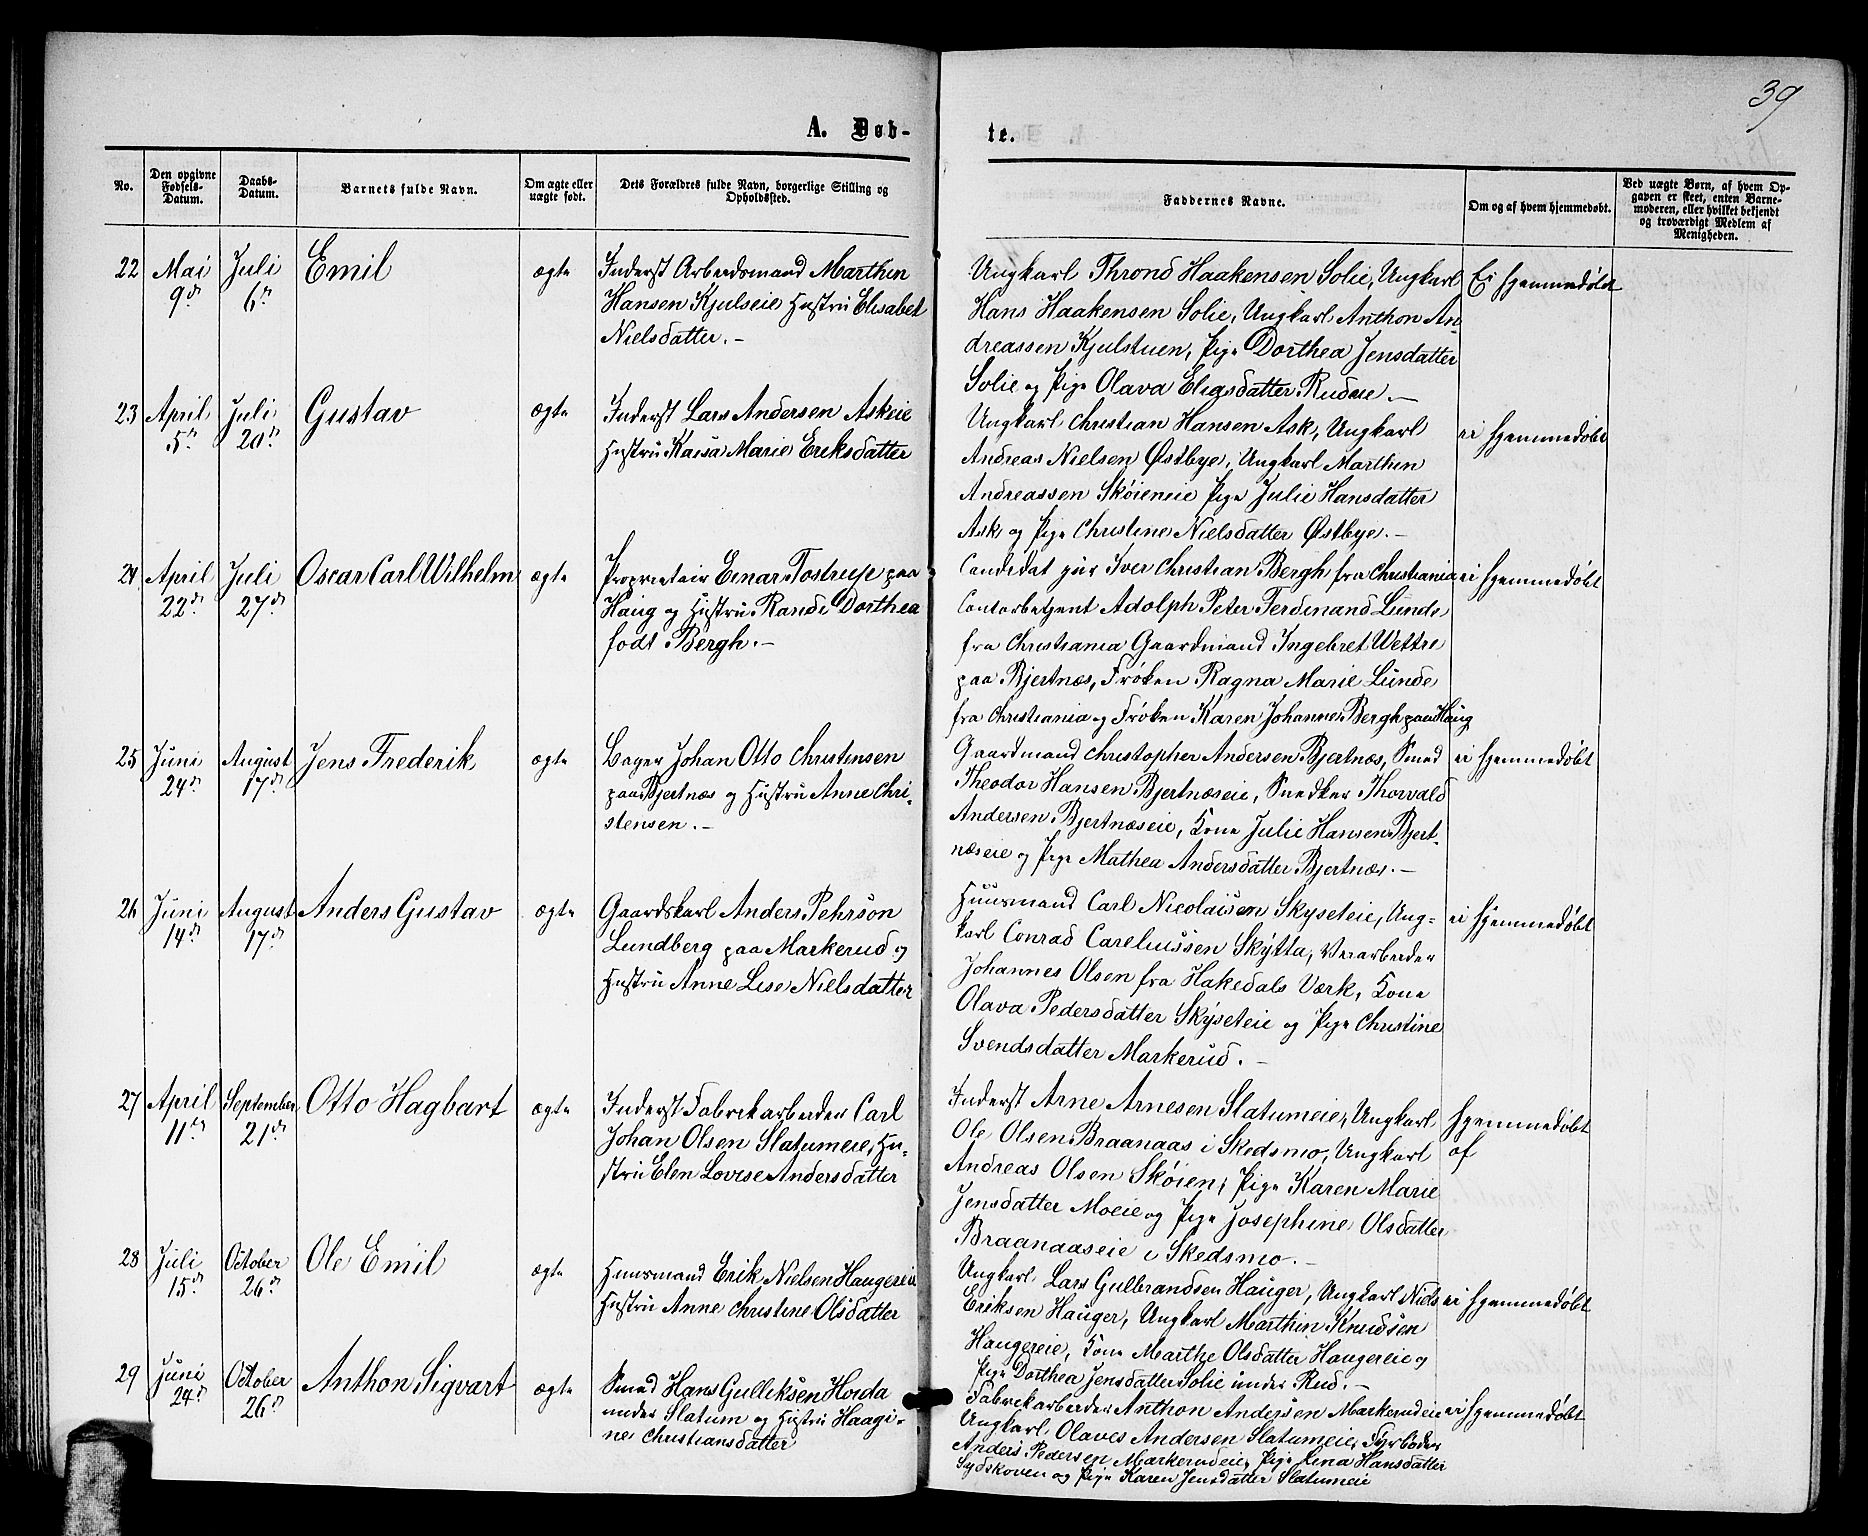 39
A. Døb-
te.
No.
Den opgivne Fødsels-Datum.
Daabs-Datum.
Barnets fulde Navn.
Om ægte eller uægte født.
Dets Forældres fulde Navn, borgerlige Stilling og Opholdssted.
Faddernes Navne.
Om og af hvem hjemmedøbt.
Ved uægte Børn, af hvem Op-
gaven er skeet, enten Barne-
moderen, eller hvilket bekjendt
og troværdigt Medlem af
Menigheden.
22 Mai 9de Juli 6te Emil ægte
Inderst Arbeidsmand Marthin
Hansen Kjulseie Hustru Elisabet
Nielsdatter. -
Ungkarl Thrond Haakensen Solie, Ungkarl
Hans Haakensen Solie, Ungkarl Anthon An-
dreassen Kjulstuen, Pige Dorthea Jensdatter
Solie og Pige Olava Eliasdatter Rudeie. -
Ei hjemmedøbt
23 April 5te Juli 20de Gustav ægte
Inderst Lars Andersen Askeie
Hustru Kaisa Marie Eriksdatter
Ungkarl Christian Hansen Ask, Ungkarl
Andreas Nielsen Østbye, Ungkarl Marthin
Andreassen Skøieneie Pige Julie Hansdatter
Ask og Pige Christine Nielsdatter Østbye. -
ei hjemmedøbt
24 April 22de Juli 27de Oscar Carl Wilhelm ægte
Proprietair Einar Tostrup paa
Haug og Hustru Rande Dorthea
født Bergh. -
Candidat jur Iver Christian Bergh fra Christiania
Contorbetjent Adolph Peter Ferdinand Lunde
fra Christiania Gaardmand Ingebret Wettre
paa Bjertnæs, Frøken Ragna Marie Lunde
fra Christiania og Frøken Karen Johanne Bergh paa Haug
ei hjemmedøbt
25 Juni 24de August 17de Jens Frederik ægte
Bager Johan Otto Christensen
paa Bjertnæs og Hustru Anne Chri-
stensen. -
Gaardmand Christopher Andersen Bjertnæs, Smed
Theodor Hansen Bjertnæseie, Snedker Thorvald
Andersen Bjertnæseie, Kone Julie Hansen Bjert-
næseie og Pige Mathea Andersdatter Bjertnæs. -
ei hjemmedøbt
26 Juni 14de August 17de Anders Gustav ægte
Gaardskarl Anders Pehrson
Lundberg paa Markerud og
Hustru Anne Lise Nielsdatter
Huusmand Carl Nicolaisen Skyseteie, Ung-
karl Conrad Careliussen Skytta, Verarbeider
Johannes Olsen fra Hakedals Værk, Kone
Olava Pedersdatter Skyseteie og Pige Christine
Svendsdatter Markerud. -
ei hjemmedøbt
27 April 11te September 21de Otto Hagbart ægte
Inderst Fabrikarbeider Carl
Johan Olsen Slatumeie, Hu-
stru Elen Lovise Andersdatter
Inderst Arne Arnesen Slatumeie, Ungkarl
Ole Olsen Braanaas i Skedsmo, Ungkarl
Andreas Olsen Skøien, Pige Karen Marie
Jensdatter Moeie og Pige Josephine Olsdatter
Braanaaseie i Skedsmo. -
hjemmedøbt
af
28 Juli 15de October 26de Ole Emil ægte
Huusmand Erik Nielsen Haugereie
Hustru Anne Christine Olsdatter
Ungkarl Lars Gulbrandsen Hauger, Ungkarl Niels
Eriksen Hauger, Ungkarl Marthin Knudsen
Haugereie, Kone Marthe Olsdatter Haugereie og
Pige Dorthea Jensdatter Solie under Rud. -
ei hjemmedøbt
29 Juni 24de October 26de Anthon Sigvart ægte
Smed Hans Gulliksen Horda
under Slatum og Hustru Haagi-
ne Christiansdatter
Fabrikarbeider Anthon Andersen Markerudeie
Ungkarl Olaves Andersen Slatumeie, Fyrbøder
Anders Pedersen Markerudeie, Pige Lina Hansdatter
Sydskoven og Pige Karen Jensdatter Slatumeie
ei hjemmedøbt